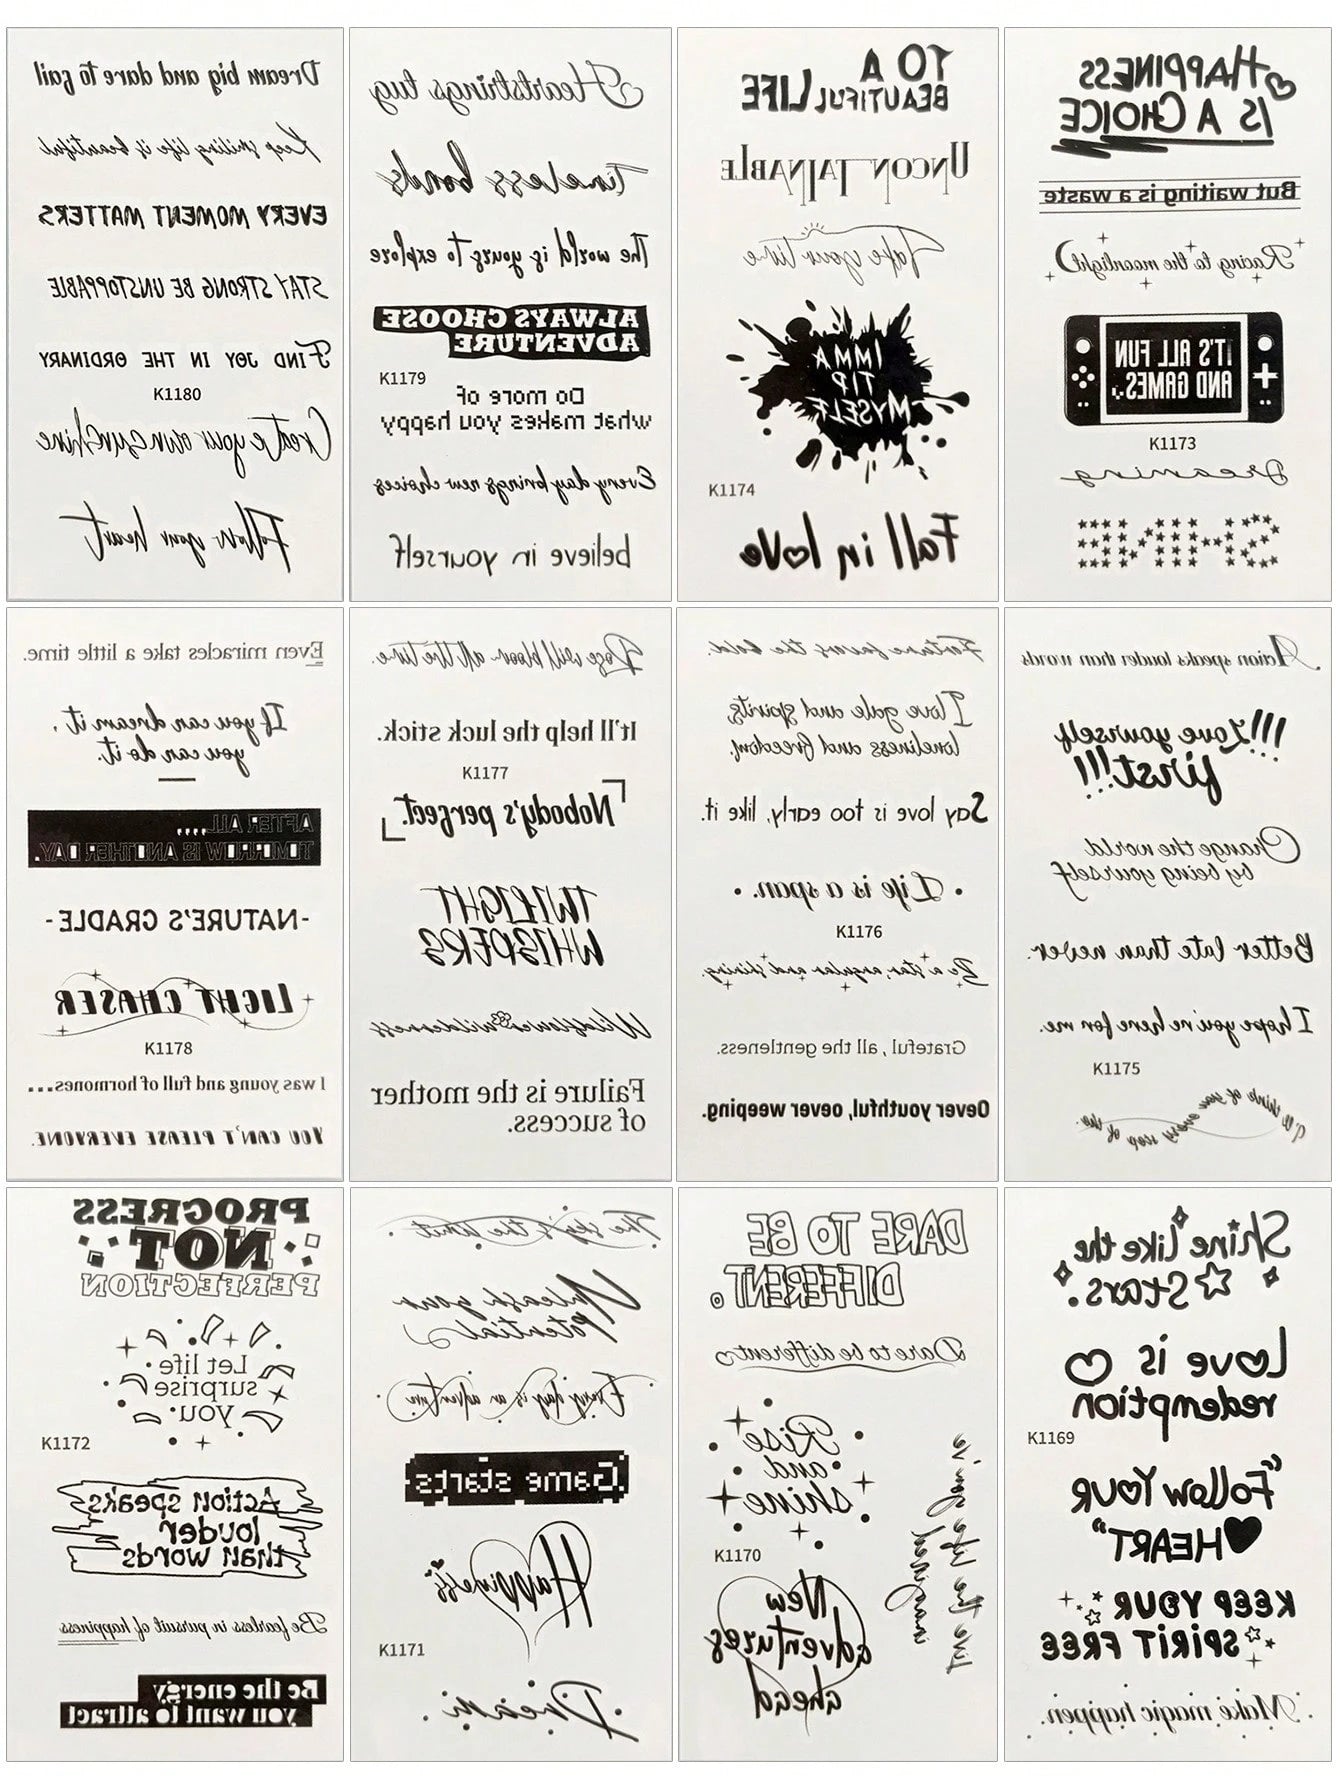 Dream big and dare to sail
Keep smiling life is beautiful
EVERY MOMENT MATTERS
STAY STRONG BE UNSTOPPABLE
FIND JOY IN THE ORDINARY
K1180
Create your own sunshine
Follow your heart
Heartstrings tug
Timeless bonds
The world is yours to explore
ALWAYS CHOOSE
ADVENTURE
K1179
Do more of
what makes you happy
Every day brings new choices
believe in yourself
TO A
BEAUTIFUL LIFE
UNCONTAINABLE
Take your time
IMMA
TIP
MYSELF
K1174
Fall in love
HAPPINESS
IS A CHOICE
But waiting is a waste
Racing to the moonlight
IT'S ALL FUN
AND GAMES
K1173
Dreaming
SHINE
Even miracles take a little time.
If you can dream it,
you can do it.
AFTER ALL,,,,
TOMORROW IS ANOTHER DAY.
-NATURE'S CRADLE-
LIGHT CHASER
K1178
I was young and full of hormones...
YOU CAN'T PLEASE EVERYONE.
Rose will bloom all the time.
It'll help the luck stick.
K1177
Nobody's perfect.
TWILIGHT
WHISPERS
Wildflower wilderness
Failure is the mother
of success.
Fortune favors the bold.
I love gale and spirits,
loneliness and freedom.
Say love is too early, like it.
• Life is a span. •
K1176
Be a star, angular and shining.
Grateful, all the gentleness.
Oever youthful, oever weeping.
Action speaks louder than words
!!!Love yourself
first!!!
Change the world
by being yourself
Better late than never.
I hope you're here for me.
K1175
I'll think of you every step of the.
PROGRESS
NOT
PERFECTION
Let life
surprise
you
K1172
Action speaks
louder
than words
Be fearless in pursuit of happiness
Be the energy
you want to attract
The sky's the limit
Unleash your
Potential
Every day is an adventure
Game starts
Happiness
K1171
Dream
DARE TO BE
DIFFERENT.
Dare to be different
Rise
and
shine
K1170
New
adventures
ahead
live the life you've
imagined
Shine like the
Stars.
Love is
redemption
K1169
"FOLLOW YOUR
HEART"
KEEP YOUR
SPIRIT FREE
Make magic happen.